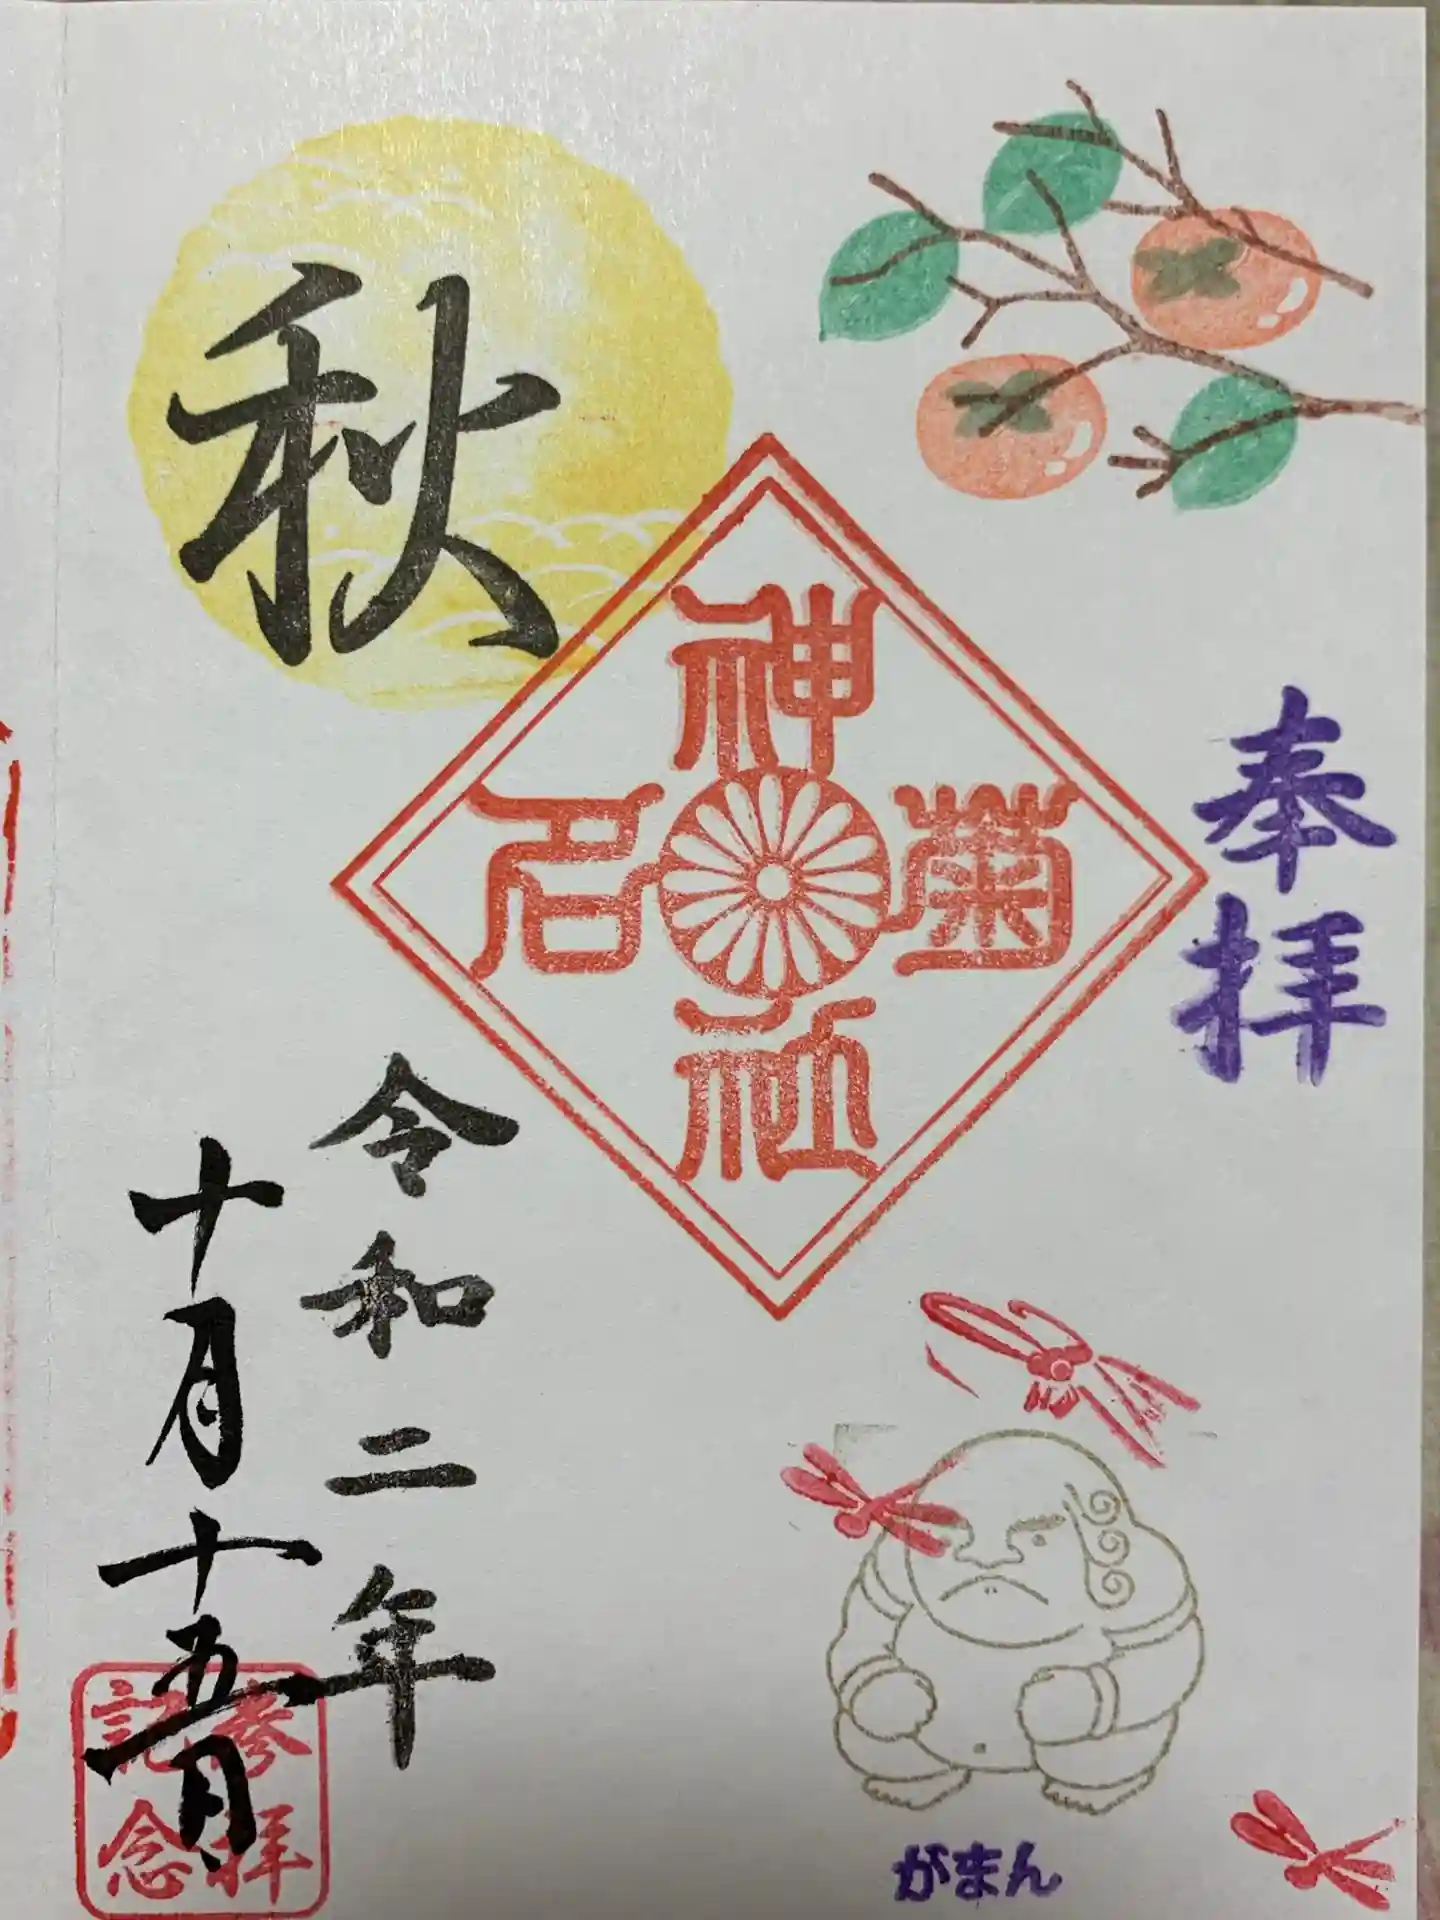 奉拝
菊名
神社
秋
令和二年
十月十五日
参拝
記念
がまん